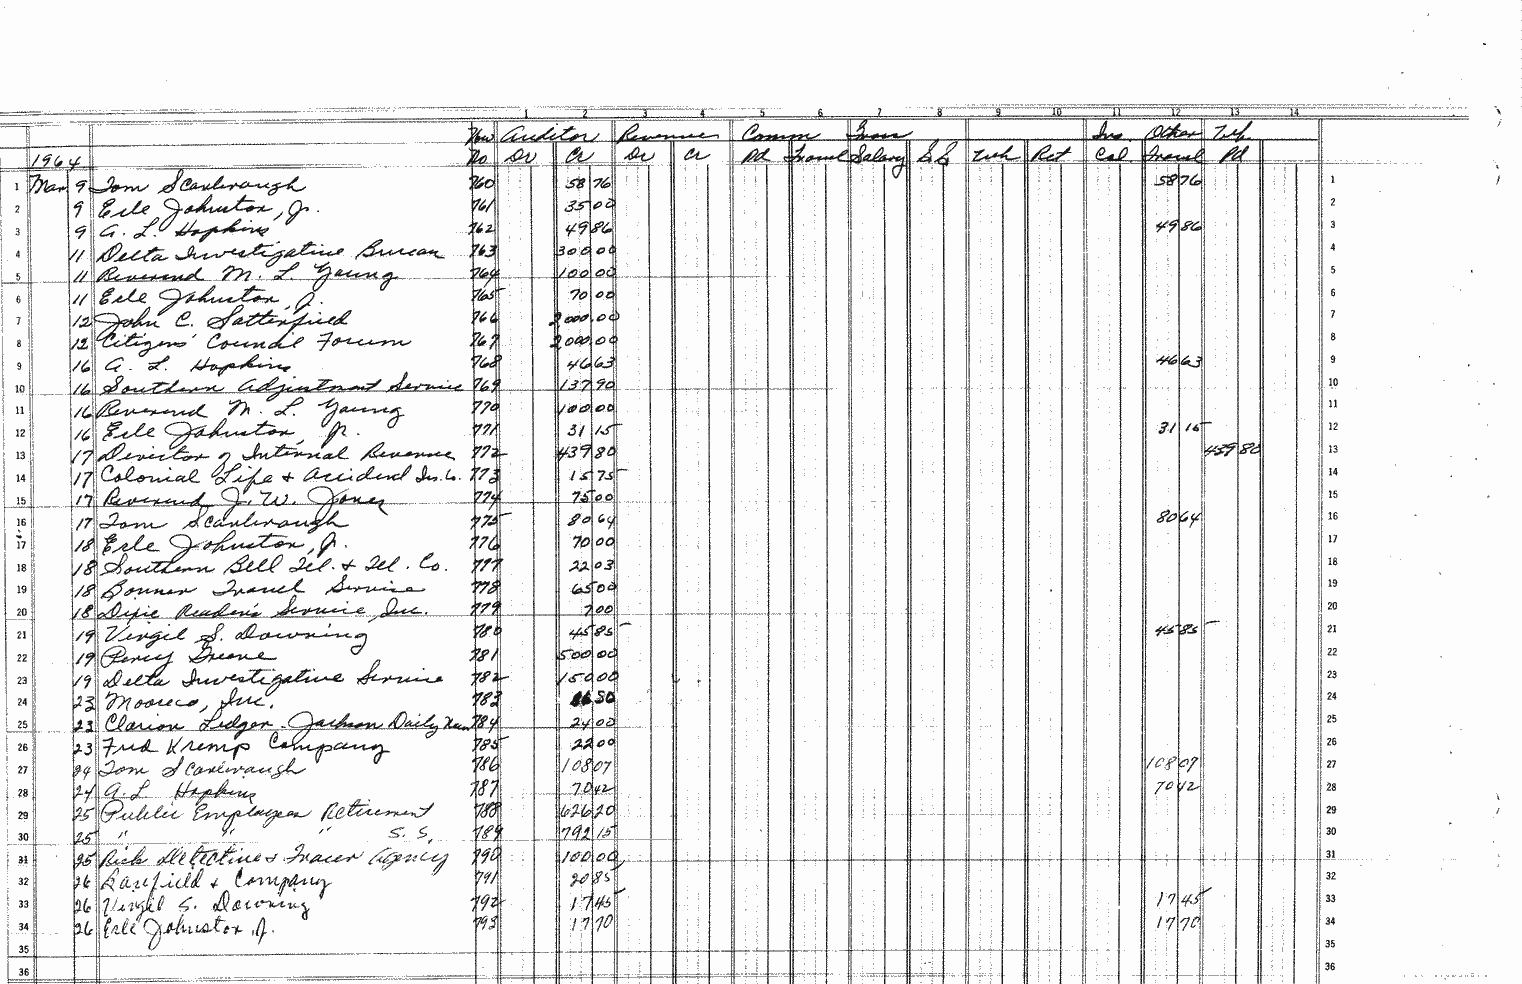 1 2 3 4 5 6 7 8 9 10 11 12 13 14
Auditor Revenue Comm Gross Ins Other Wh
1964 No Dr Cr Dr Cr Pd Travel Salary S.S. Wh Ret Cal Travel Pd
1 Mar 9 Tom Scarbrough 760 58 76 58 76 1
2 9 Erle Johnston, Jr. 761 35 00 2
3 9 A. L. Hopkins 762 49 86 49 86 3
4 11 Delta Investigative Bureau 763 300 00 4
5 11 Reverend M. L. Young 764 100 00 5
6 11 Erle Johnston, Jr. 765 70 00 6
7 12 John C. Satterfield 766 2000.00 7
8 12 Citizens' Council Forum 767 2000.00 8
9 16 A. L. Hopkins 768 46 63 46 63 9
10 16 Southern Adjustment Service 769 137 90 10
11 16 Reverend M. L. Young 770 100 00 11
12 16 Erle Johnston, Jr. 771 31 15 31 15 12
13 17 Director of Internal Revenue 772 439 80 439 80 13
14 17 Colonial Life & Accident Ins. Co. 773 15 75 14
15 17 Reverend J. W. Jones 774 75 00 15
16 17 Tom Scarbrough 775 80 64 80 64 16
17 18 Erle Johnston, Jr. 776 70 00 17
18 18 Southern Bell Tel. & Tel. Co. 777 22 03 18
19 18 Bonner Travel Service 778 65 00 19
20 18 Dixie Reader's Service, Inc. 779 7 00 20
21 19 Virgil S. Downing 780 45 85 45 85 21
22 19 Percy Greene 781 500 00 22
23 19 Delta Investigative Service 782 150 00 23
24 23 Mooreco, Inc. 783 50 24
25 23 Clarion Ledger - Jackson Daily News 784 24 00 25
26 23 Fred Kremp Company 785 22 00 26
27 24 Tom Scarbrough 786 108 07 108 07 27
28 24 A. L. Hopkins 787 70 42 70 42 28
29 25 Public Employees Retirement 788 626 20 29
30 25 " " " S. S. 789 792 15 30
31 25 Rick Detective & Tracer Agency 790 100 00 31
32 26 & Company 791 20 85 32
33 26 Virgil S. Downing 792 17 45 17 45 33
34 26 Erle Johnston Jr. 793 17 70 17 70 34
35 35
36 36